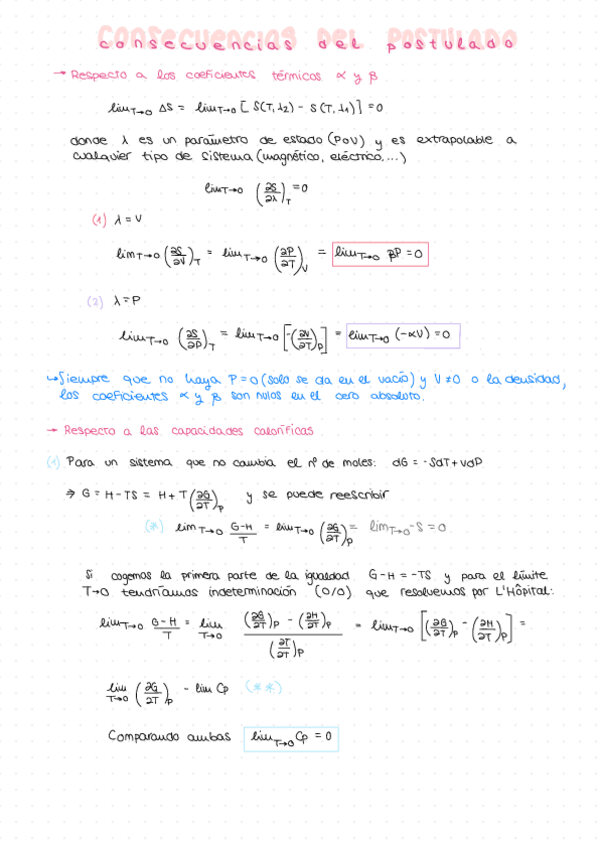 consecuencias del postulado
→ Respecto a los coeficientes térmicos α y β
lim T→0 ΔS = lim T→0 [ S(T, λ2) - S(T, λ1) ] = 0
donde λ es un parámetro de estado (P o V) y es extrapolable a
cualquier tipo de sistema (magnético, eléctrico,...)
lim T→0 (∂S/∂λ)T = 0
(1) λ = V
lim T→0 (∂S/∂V)T = lim T→0 (∂P/∂T)V = lim T→0 βP = 0
(2) λ = P
lim T→0 (∂S/∂P)T = lim T→0 [-(∂V/∂T)P] = lim T→0 (-αV) = 0
↪ Siempre que no haya P=0 (solo se da en el vacío) y V≠0 o la densidad,
los coeficientes α y β son nulos en el cero absoluto.
→ Respecto a las capacidades caloríficas
(1) Para un sistema que no cambia el nº de moles: dG = -SdT + VdP
⇒ G = H - TS = H + T(∂G/∂T)P y se puede reescribir
(*) lim T→0 G-H/T = lim T→0 (∂G/∂T)P = lim T→0 -S = 0
Si cogemos la primera parte de la igualdad G-H = -TS y para el límite
T→0 tendríamos indeterminación (0/0) que resolvemos por L'Hôpital:
lim T→0 G-H/T = lim T→0 ((∂G/∂T)P - (∂H/∂T)P)/(∂T/∂T)P = lim T→0 [(∂G/∂T)P - (∂H/∂T)P] =
lim T→0 (∂G/∂T)P - lim Cp (**)
Comparando ambas lim T→0 Cp = 0